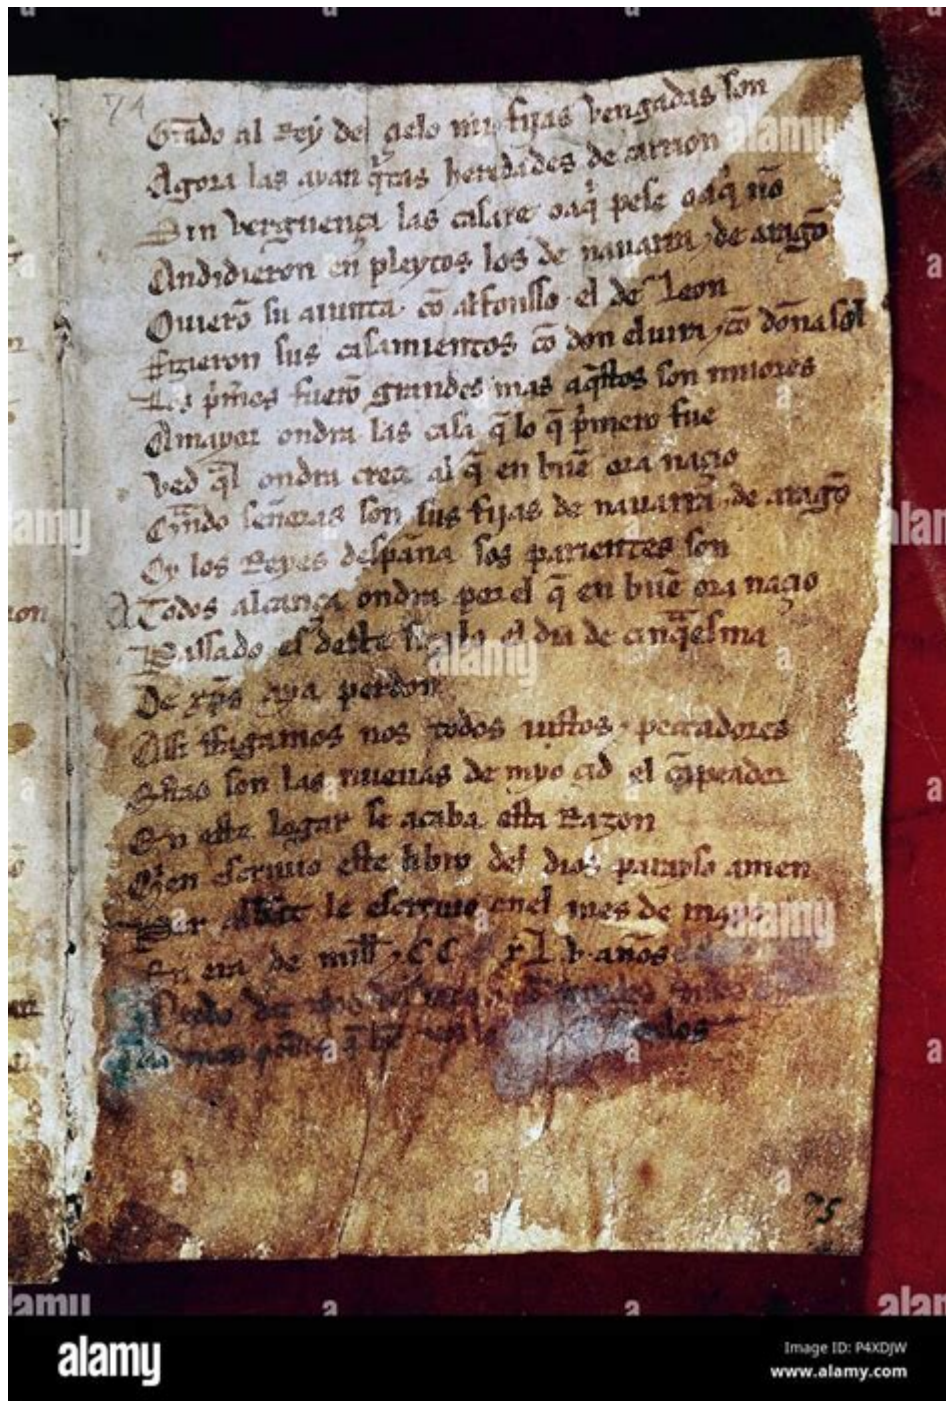 74
Grado al Rey del çielo mis fijas vengadas son
Agora las ayan q̃tas heredades de carrion
Sin verguença las casare oaq̃ pese oaq̃ nõ
Andidieron en pleytos los de nauarra ⁊ de aragõ
Ouierõ su aiunta cõ alfonsso el de Leon
ffizieron sus casamientos cõ don eluira ⁊ cõ doña sol
Los p̃meros fuerõ grandes mas aq̃stos son miiores
Amayor ondra las casa q̃ lo q̃ p̃mero fue
Ved q̃l ondra creçe al q̃ en buẽ ora naçio
Q̃ndo señoras son sus fijas de nauarra ⁊ de aragõ
Oy los Reyes despaña sos parientes son
A Todos alcança ondra por el q̃ en buẽ ora naçio
Passado es deste sieglo el dia de cinq̃esma
De xp̃s aya perdon
Assi ffagamos nos todos iustos ⁊ peccadores
Estas son las nueuas de myo çid el cãpeador
En este logar se acaba esta Razon
Q̃en escriuio este libro del dios parayso amen
Per abbat le escriuio enel mes de mayo
En era de mill ⁊ C C xL.v. años
75
alamy
Image ID: P4XDJW
www.alamy.com